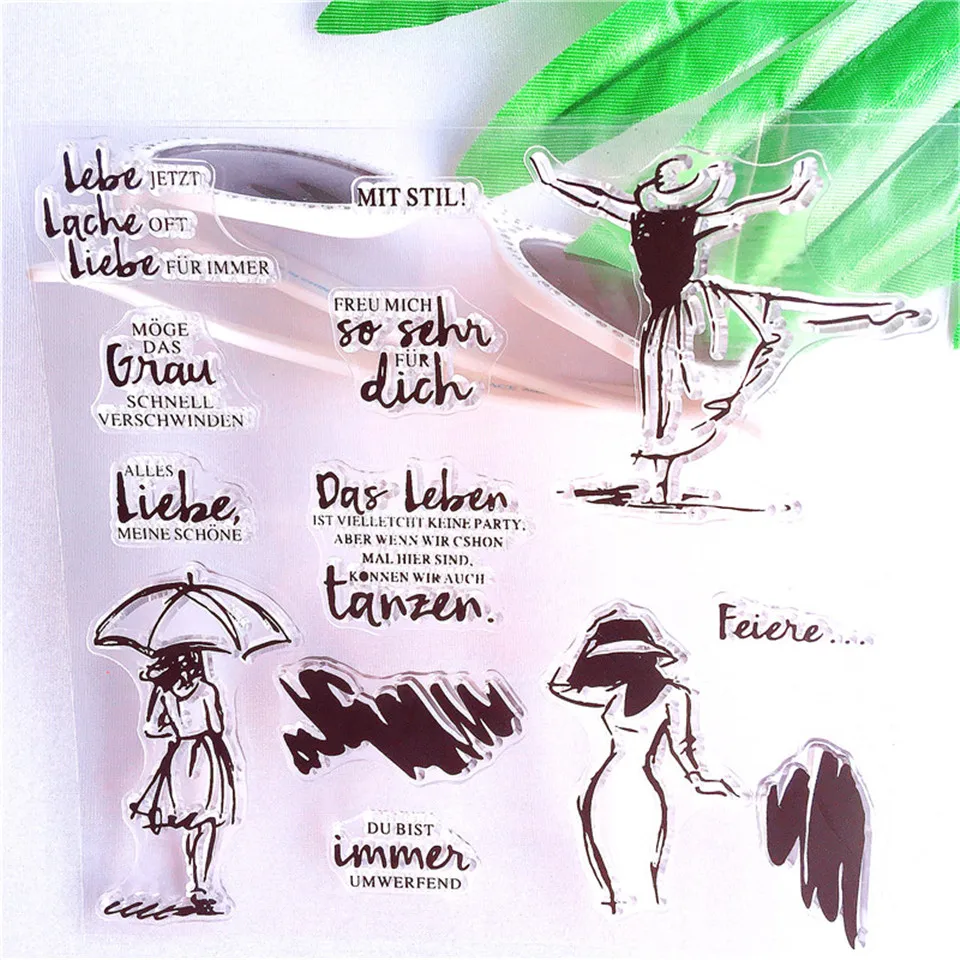 Lebe JETZT
Lache OFT
Liebe FÜR IMMER
MIT STIL!
MÖGE
DAS
Grau
SCHNELL
VERSCHWINDEN
FREU MICH
so sehr
FÜR
dich
ALLES
Liebe,
MEINE SCHÖNE
Das Leben
IST VIELLETCHT KEINE PARTY,
ABER WENN WIR CSHON
MAL HIER SIND,
KÖNNEN WIR AUCH
tanzen.
Feiere....
DU BIST
immer
UMWERFEND